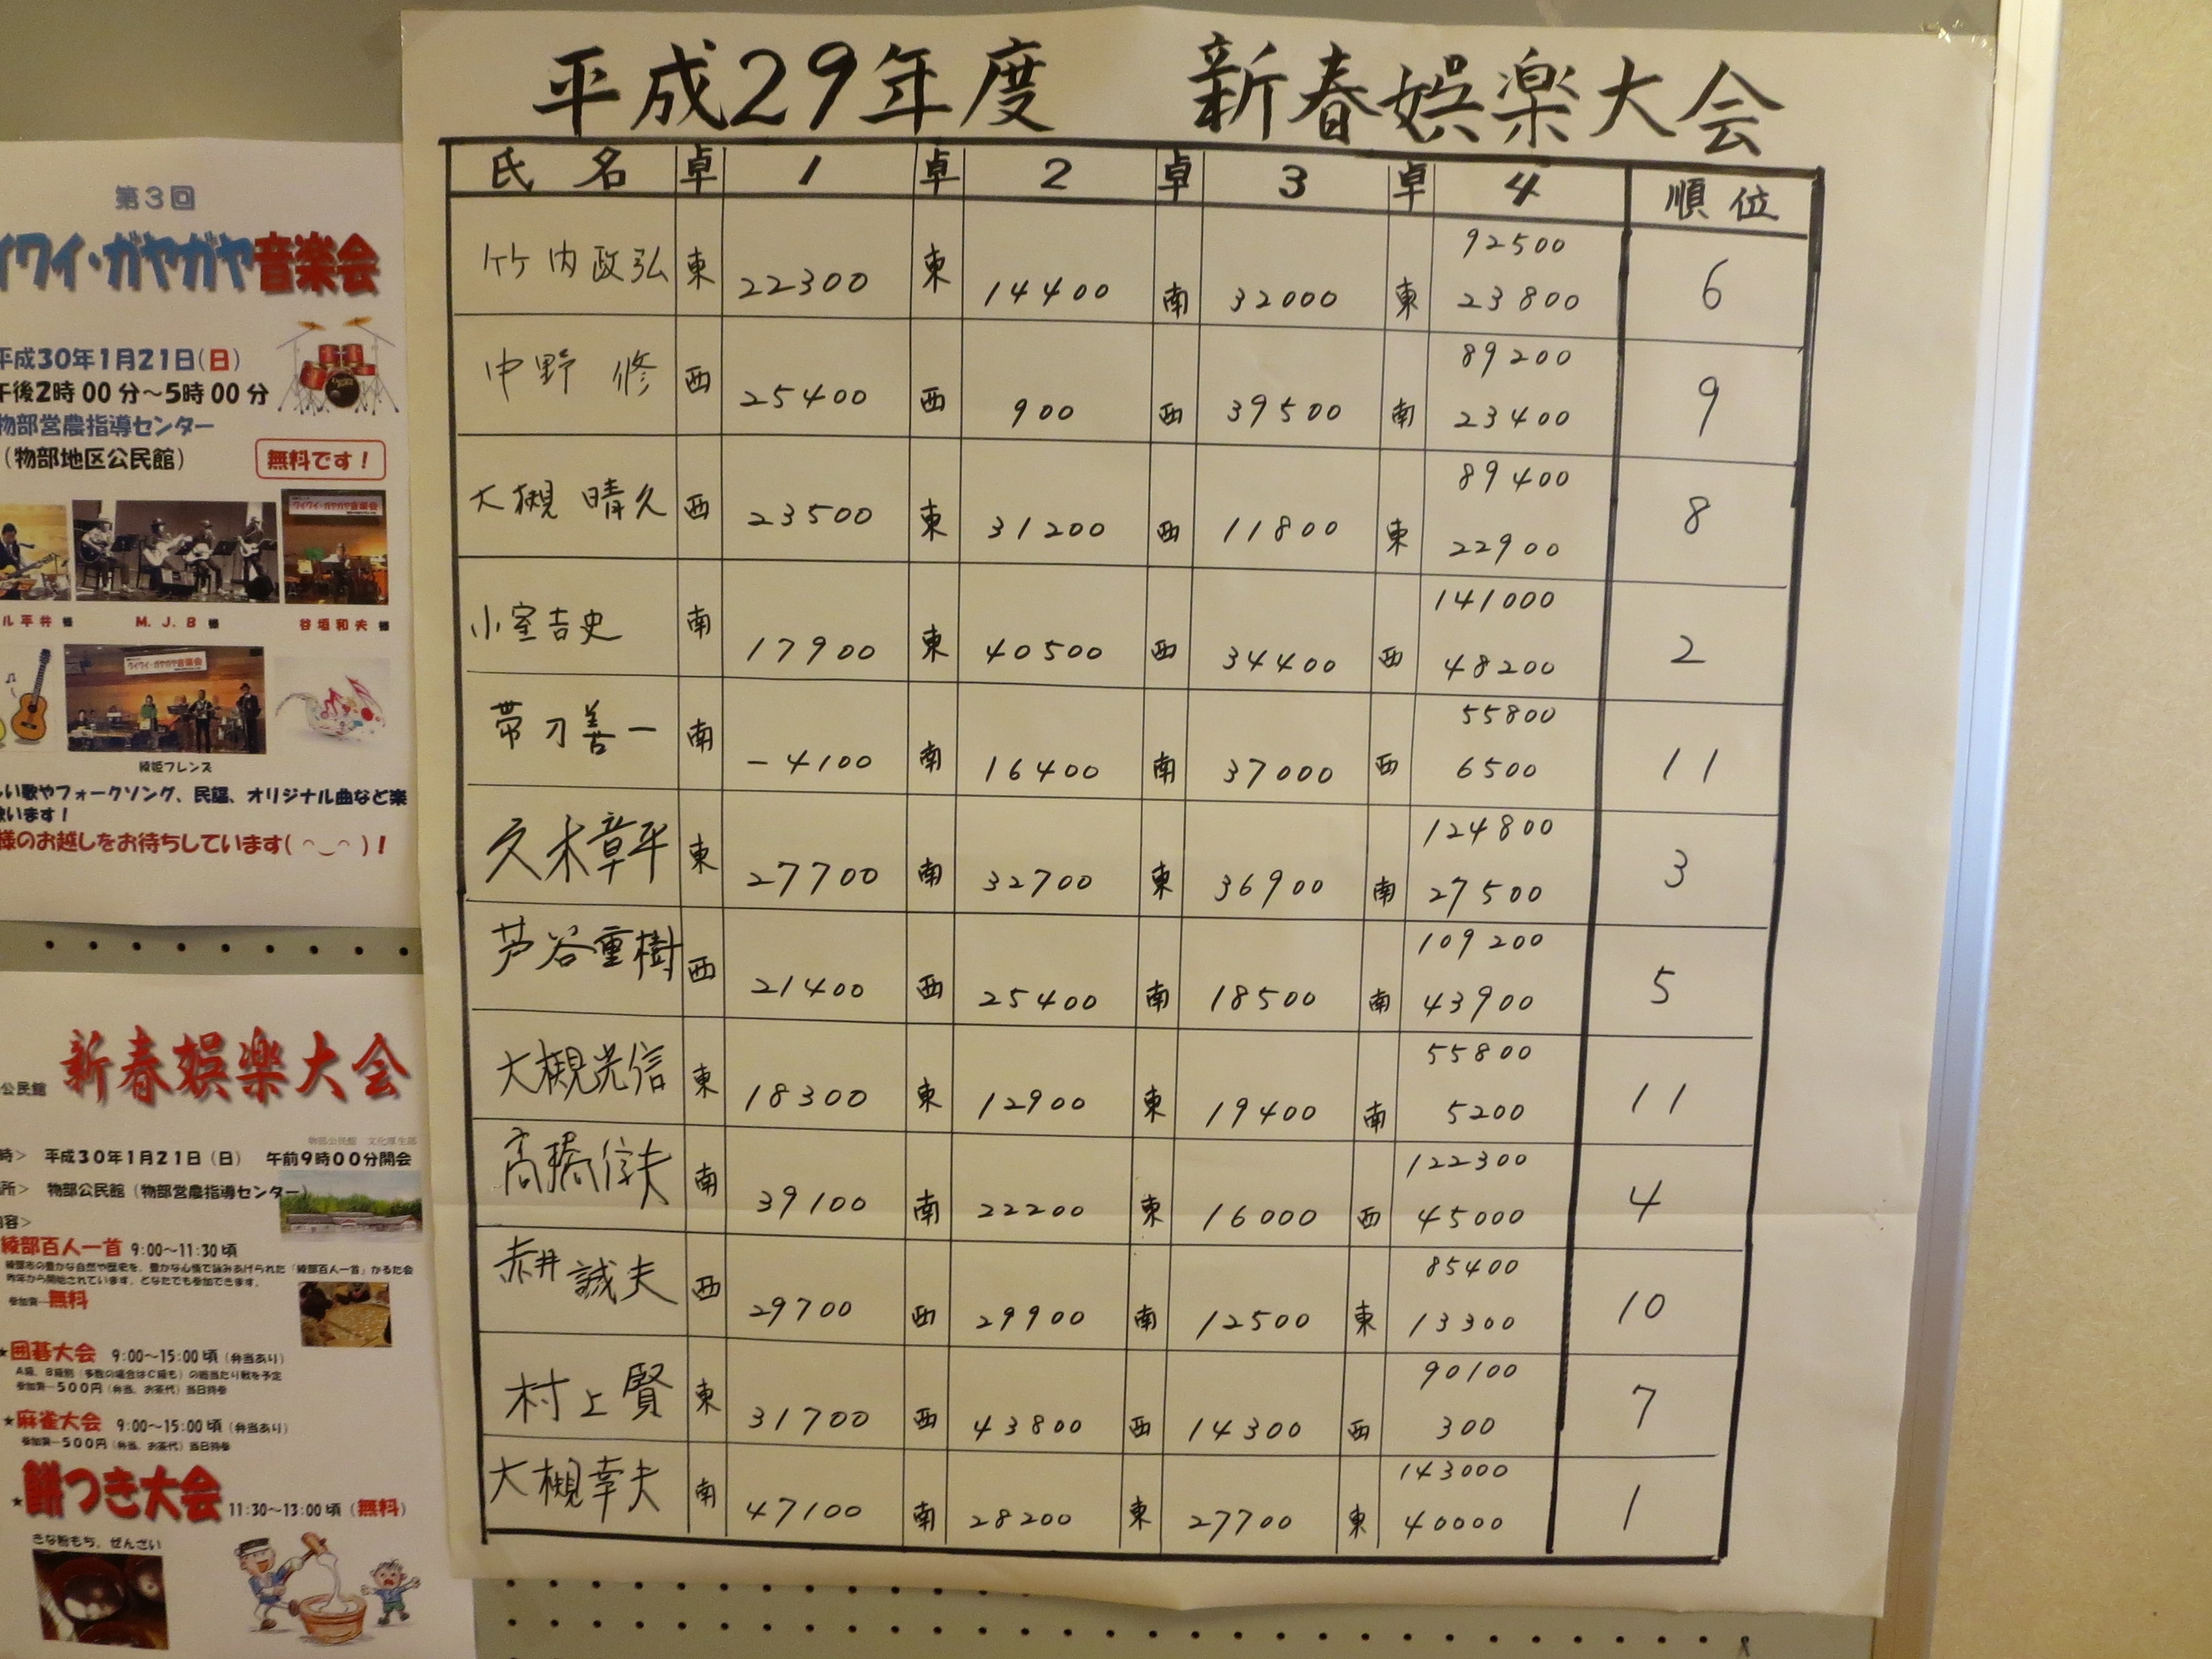 平成29年度 新春娯楽大会
氏名 卓 1 卓 2 卓 3 卓 4 順位
竹内政弘 東 22300 東 14400 南 32000 東 92500 23800 6
中野 修 西 25400 西 900 西 39500 南 89200 23400 9
大槻 晴久 西 23500 東 31200 西 11800 東 89400 22900 8
小室吉史 南 17900 東 40500 西 34400 西 141000 48200 2
帯刀善一 南 -4100 南 16400 南 37000 西 55800 6500 11
久木章平 東 27700 南 32700 東 36900 南 124800 27500 3
芦谷重樹 西 21400 西 25400 南 18500 南 109200 43900 5
大槻光信 東 18300 東 12900 東 19400 南 55800 5200 11
高橋信夫 南 39100 南 22200 東 16000 西 122300 45000 4
赤井誠夫 西 29700 西 29900 南 12500 東 85400 13300 10
村上賢 東 31700 西 43800 西 14300 西 90100 300 7
大槻幸夫 南 47100 南 28200 東 27700 東 143000 40000 1
第3回
イワイ・ガヤガヤ音楽会
平成30年1月21日(日)
午後2時00分～5時00分
物部営農指導センター
(物部地区公民館)
無料です！
ワイワイ・ガヤガヤ音楽会
ル平井 様 M.J.B 様 谷垣和夫 様
ワイワイ・ガヤガヤ音楽会
綾姫フレンズ
しい歌やフォークソング、民謡、オリジナル曲など楽
歌います！
様のお越しをお待ちしています(⌒‿⌒)！
公民館 新春娯楽大会
物部公民館 文化厚生部
時＞ 平成30年1月21日(日) 午前9時00分開会
所＞ 物部公民館(物部営農指導センター)
内容＞
綾部百人一首 9:00～11:30頃
綾部市の豊かな自然や歴史を、豊かな心情で詠みあげられた「綾部百人一首」かるた会
昨年から開始されています。どなたでも参加できます。
参加費―無料
★囲碁大会 9:00～15:00頃(弁当あり)
A級、B級別(多数の場合はC級も)の総当たり戦を予定
参加費―500円(弁当、お茶代)当日持参
★麻雀大会 9:00～15:00頃(弁当あり)
参加費―500円(弁当、お茶代)当日持参
★餅つき大会 11:30～13:00頃(無料)
きな粉もち、ぜんざい